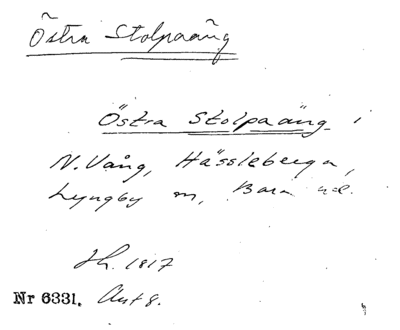 Östra Stolpaäng
Östra Stolpaäng i
N. Vång, Hässleberga,
Lyngby m, Bara
1817
Nr 6331. Akt 8.